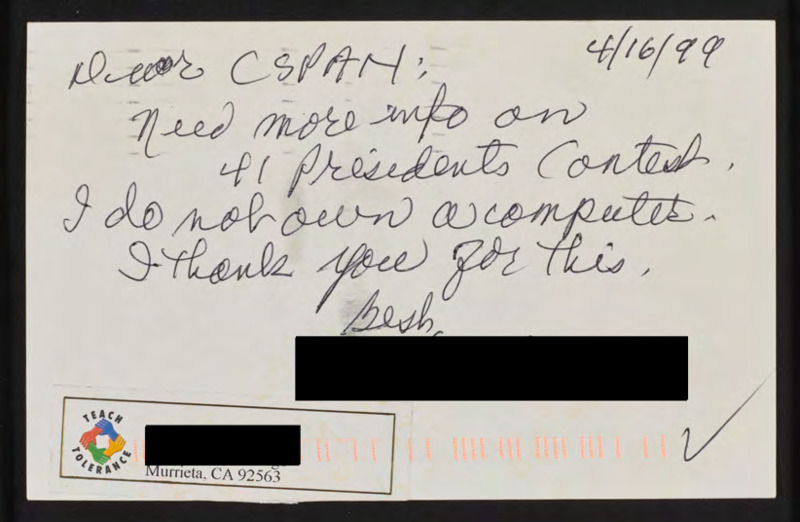 4/16/99
Dear CSPAN:
Need more info on
41 Presidents Contest.
I do not own a computer.
I thank you for this.
Best,
TEACH
TOLERANCE
Murrieta, CA 92563